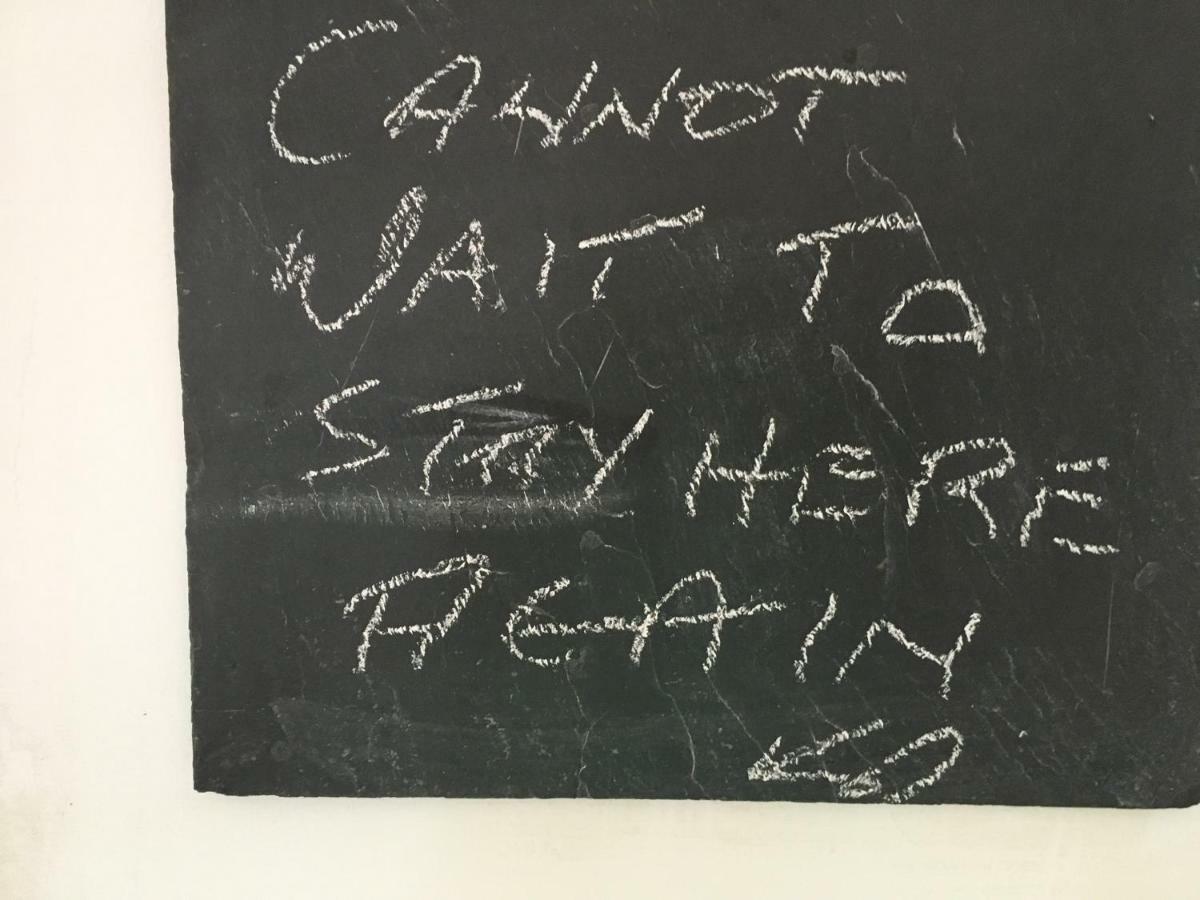 CANNOT
WAIT TO
STAY HERE
AGAIN